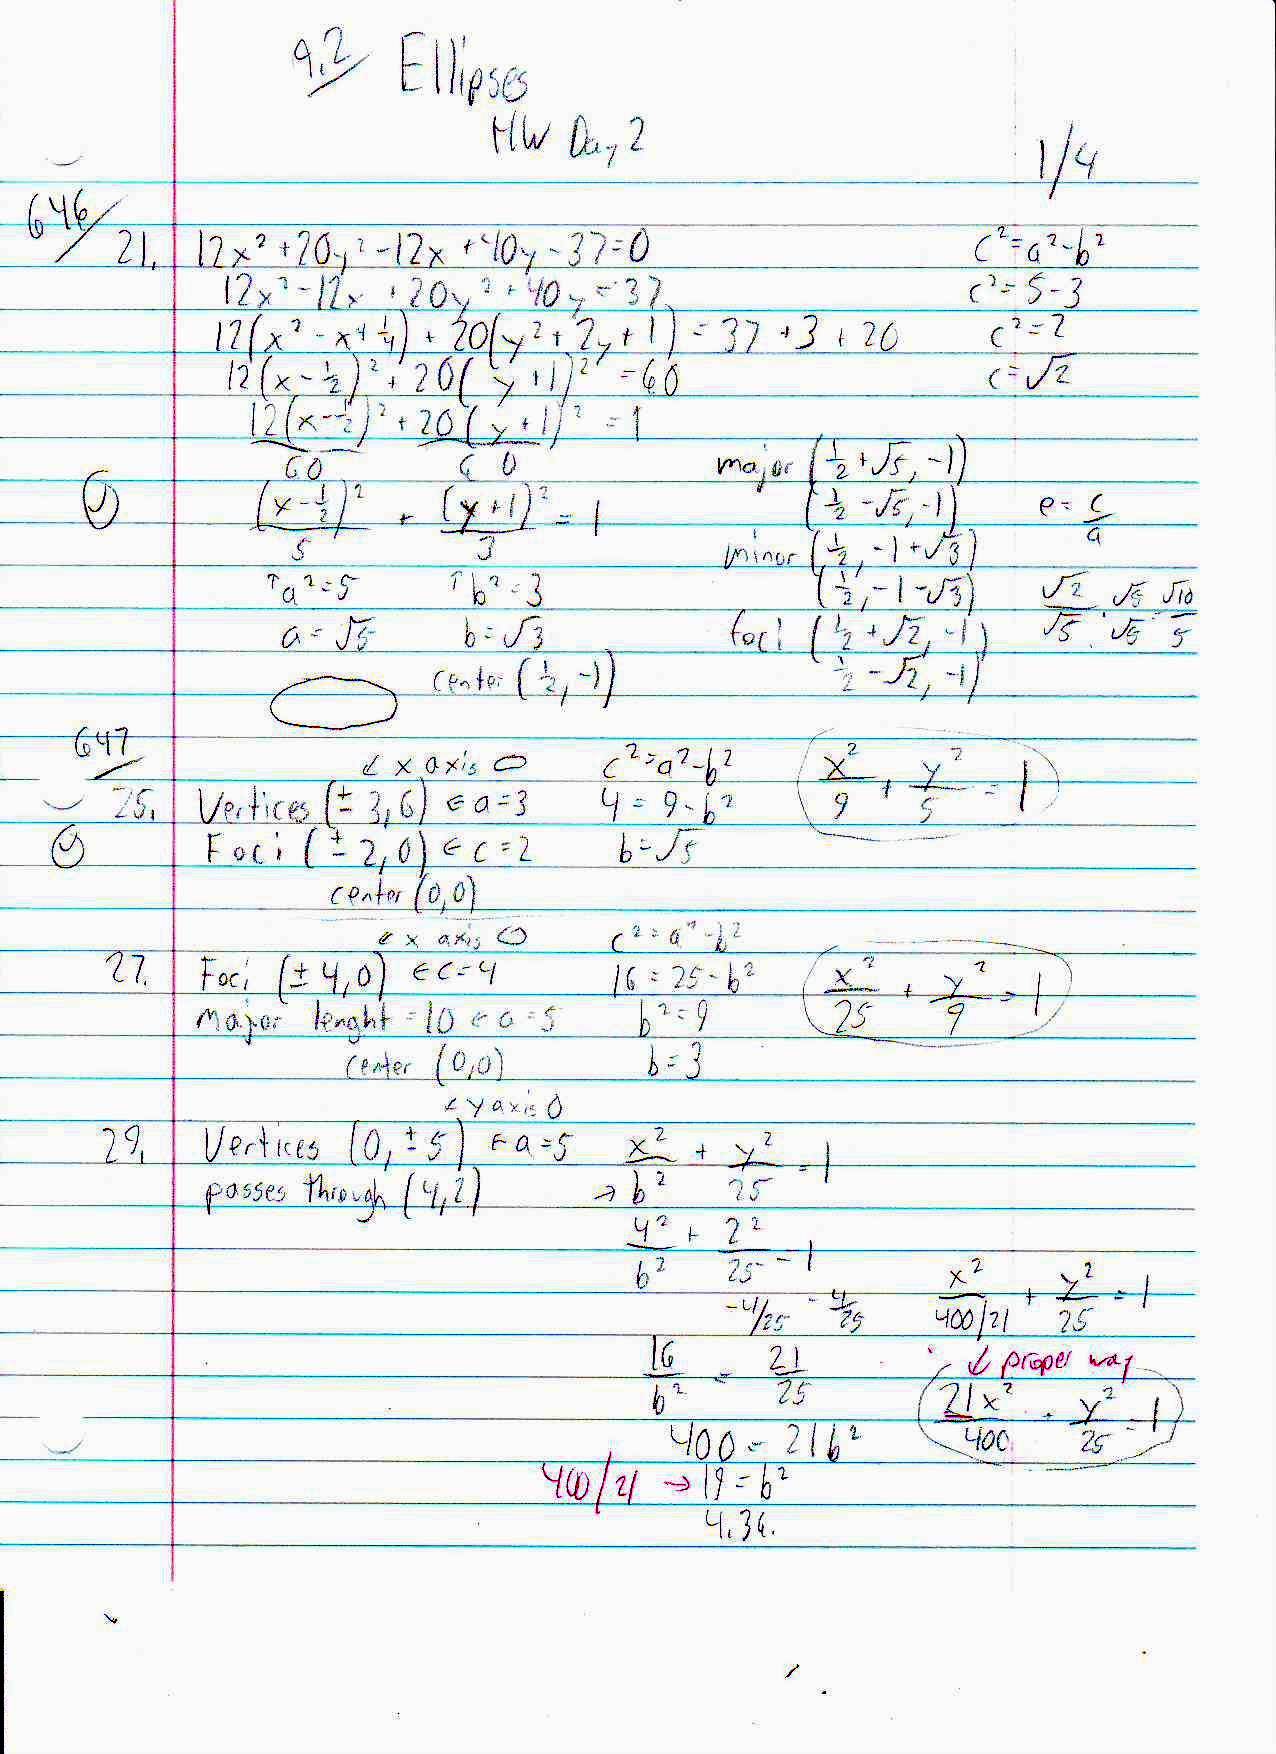 9.2 Ellipses
HW Day 2
1/4
646/
21. 12x² + 20y² - 12x + 40y - 37 = 0
12x² - 12x + 20y² + 40y = 37
12(x² - x + 1/4) + 20(y² + 2y + 1) = 37 + 3 + 20
12(x - 1/2)² + 20(y + 1)² = 60
12(x - 1/2)²/60 + 20(y + 1)²/60 = 1
(x - 1/2)²/5 + (y + 1)²/3 = 1
↑a² = 5 ↑b² = 3
a = √5 b = √3
center (1/2, -1)
c² = a² - b²
c² = 5 - 3
c² = 2
c = √2
major (1/2 + √5, -1)
(1/2 - √5, -1)
minor (1/2, -1 + √3)
(1/2, -1 - √3)
foci (1/2 + √2, -1)
1/2 - √2, -1)
e = c/a
√2/√5 · √5/√5 = √10/5
647/
↙ x axis
25. Vertices (± 3, 6) ← a = 3
Foci (± 2, 0) ← c = 2
center (0,0)
c² = a² - b²
4 = 9 - b²
b = √5
x²/9 + y²/5 = 1
↙ x axis
27. Foci (± 4, 0) ← c = 4
Major lenght = 10 ← a = 5
center (0,0)
c² = a² - b²
16 = 25 - b²
b² = 9
b = 3
x²/25 + y²/9 = 1
↙ y axis
29. Vertices (0, ± 5) ← a = 5
passes through (4,2)
x²/b² + y²/25 = 1
4²/b² + 2²/25 = 1
-4/25 - 4/25
16/b² = 21/25
400 = 21b²
400/21 → 19 = b²
4.36.
x²/400/21 + y²/25 = 1
↙ proper way
21x²/400 + y²/25 = 1